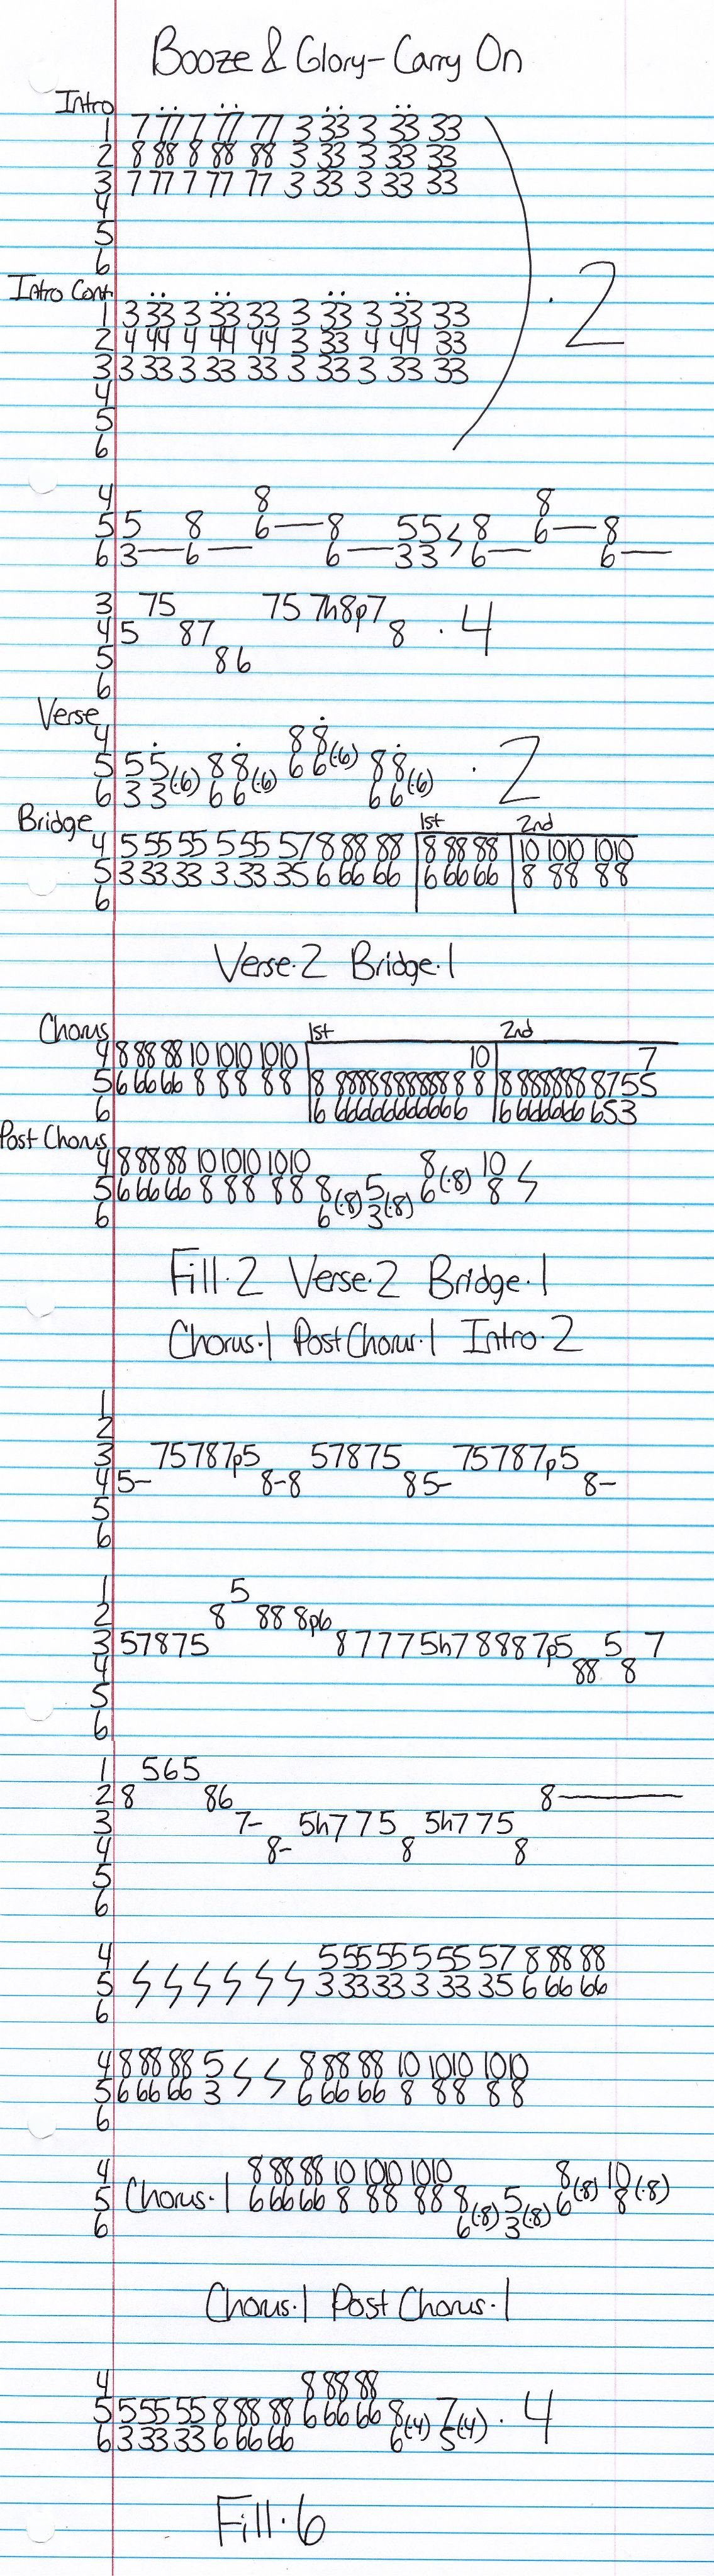 Booze & Glory - Carry On
Intro
1 7 77 7 77 77 3 33 3 33 33
2 8 88 8 88 88 3 33 3 33 33
3 7 77 7 77 77 3 33 3 33 33
4
5
6
Intro Cont.
1 3 33 3 33 33 3 33 3 33 33
2 4 44 4 44 44 3 33 4 44 33
3 3 33 3 33 33 3 33 3 33 33
4
5
6
· 2
4 8 8
5 5 8 6— 8 55 8 6— 8
6 3— 6— 6— 33 6— 6—
3 75 75 7h8p7
4 5 87 8 · 4
5 86
6
Verse
4 8 8
5 5 5 8 8 6 6(·6) 8 8
6 3 3(·6) 6 6(·6) 6 6(·6) · 2
Bridge 1st 2nd
4 5 55 55 5 55 57 8 88 88 8 88 88 10 1010 1010
5 3 33 33 3 33 35 6 66 66 6 66 66 8 88 88
6
Verse·2 Bridge·1
Chorus 1st 2nd
4 8 88 88 10 1010 1010 10 7
5 6 66 66 8 88 88 8 888888888888 8 8 8 8888888 8755
6 6 666666666666 6 6666666 653
Post Chorus
4 8 88 88 10 1010 1010 8 10
5 6 66 66 8 88 88 8 5 6(·8) 8
6 6(·8) 3(·8)
Fill·2 Verse·2 Bridge·1
Chorus·1 Post Chorus·1 Intro·2
1
2
3 75787p5 57875 75787p5
4 5– 8–8 85– 8–
5
6
1 5
2 8 88 8p6
3 57875 87775h78887p5 5 7
4 88 8
5
6
1 565
2 8 86 8—
3 7– 5h775 5h775
4 8– 8 8
5
6
4 5 55 55 5 55 57 8 88 88
5 3 33 33 3 33 35 6 66 66
6
4 8 88 88 5 8 88 88 10 1010 1010
5 6 66 66 3 6 66 66 8 88 88
6
4 8 88 88 10 1010 1010 8 10
5 Chorus·1 6 66 66 8 88 88 8 5 6(·8) 8(·8)
6 6(·8) 3(·8)
Chorus·1 Post Chorus·1
4 8 88 88
5 5 55 55 8 88 88 6 66 66 8 7
6 3 33 33 6 66 66 6(·4) 5(·4) · 4
Fill·6